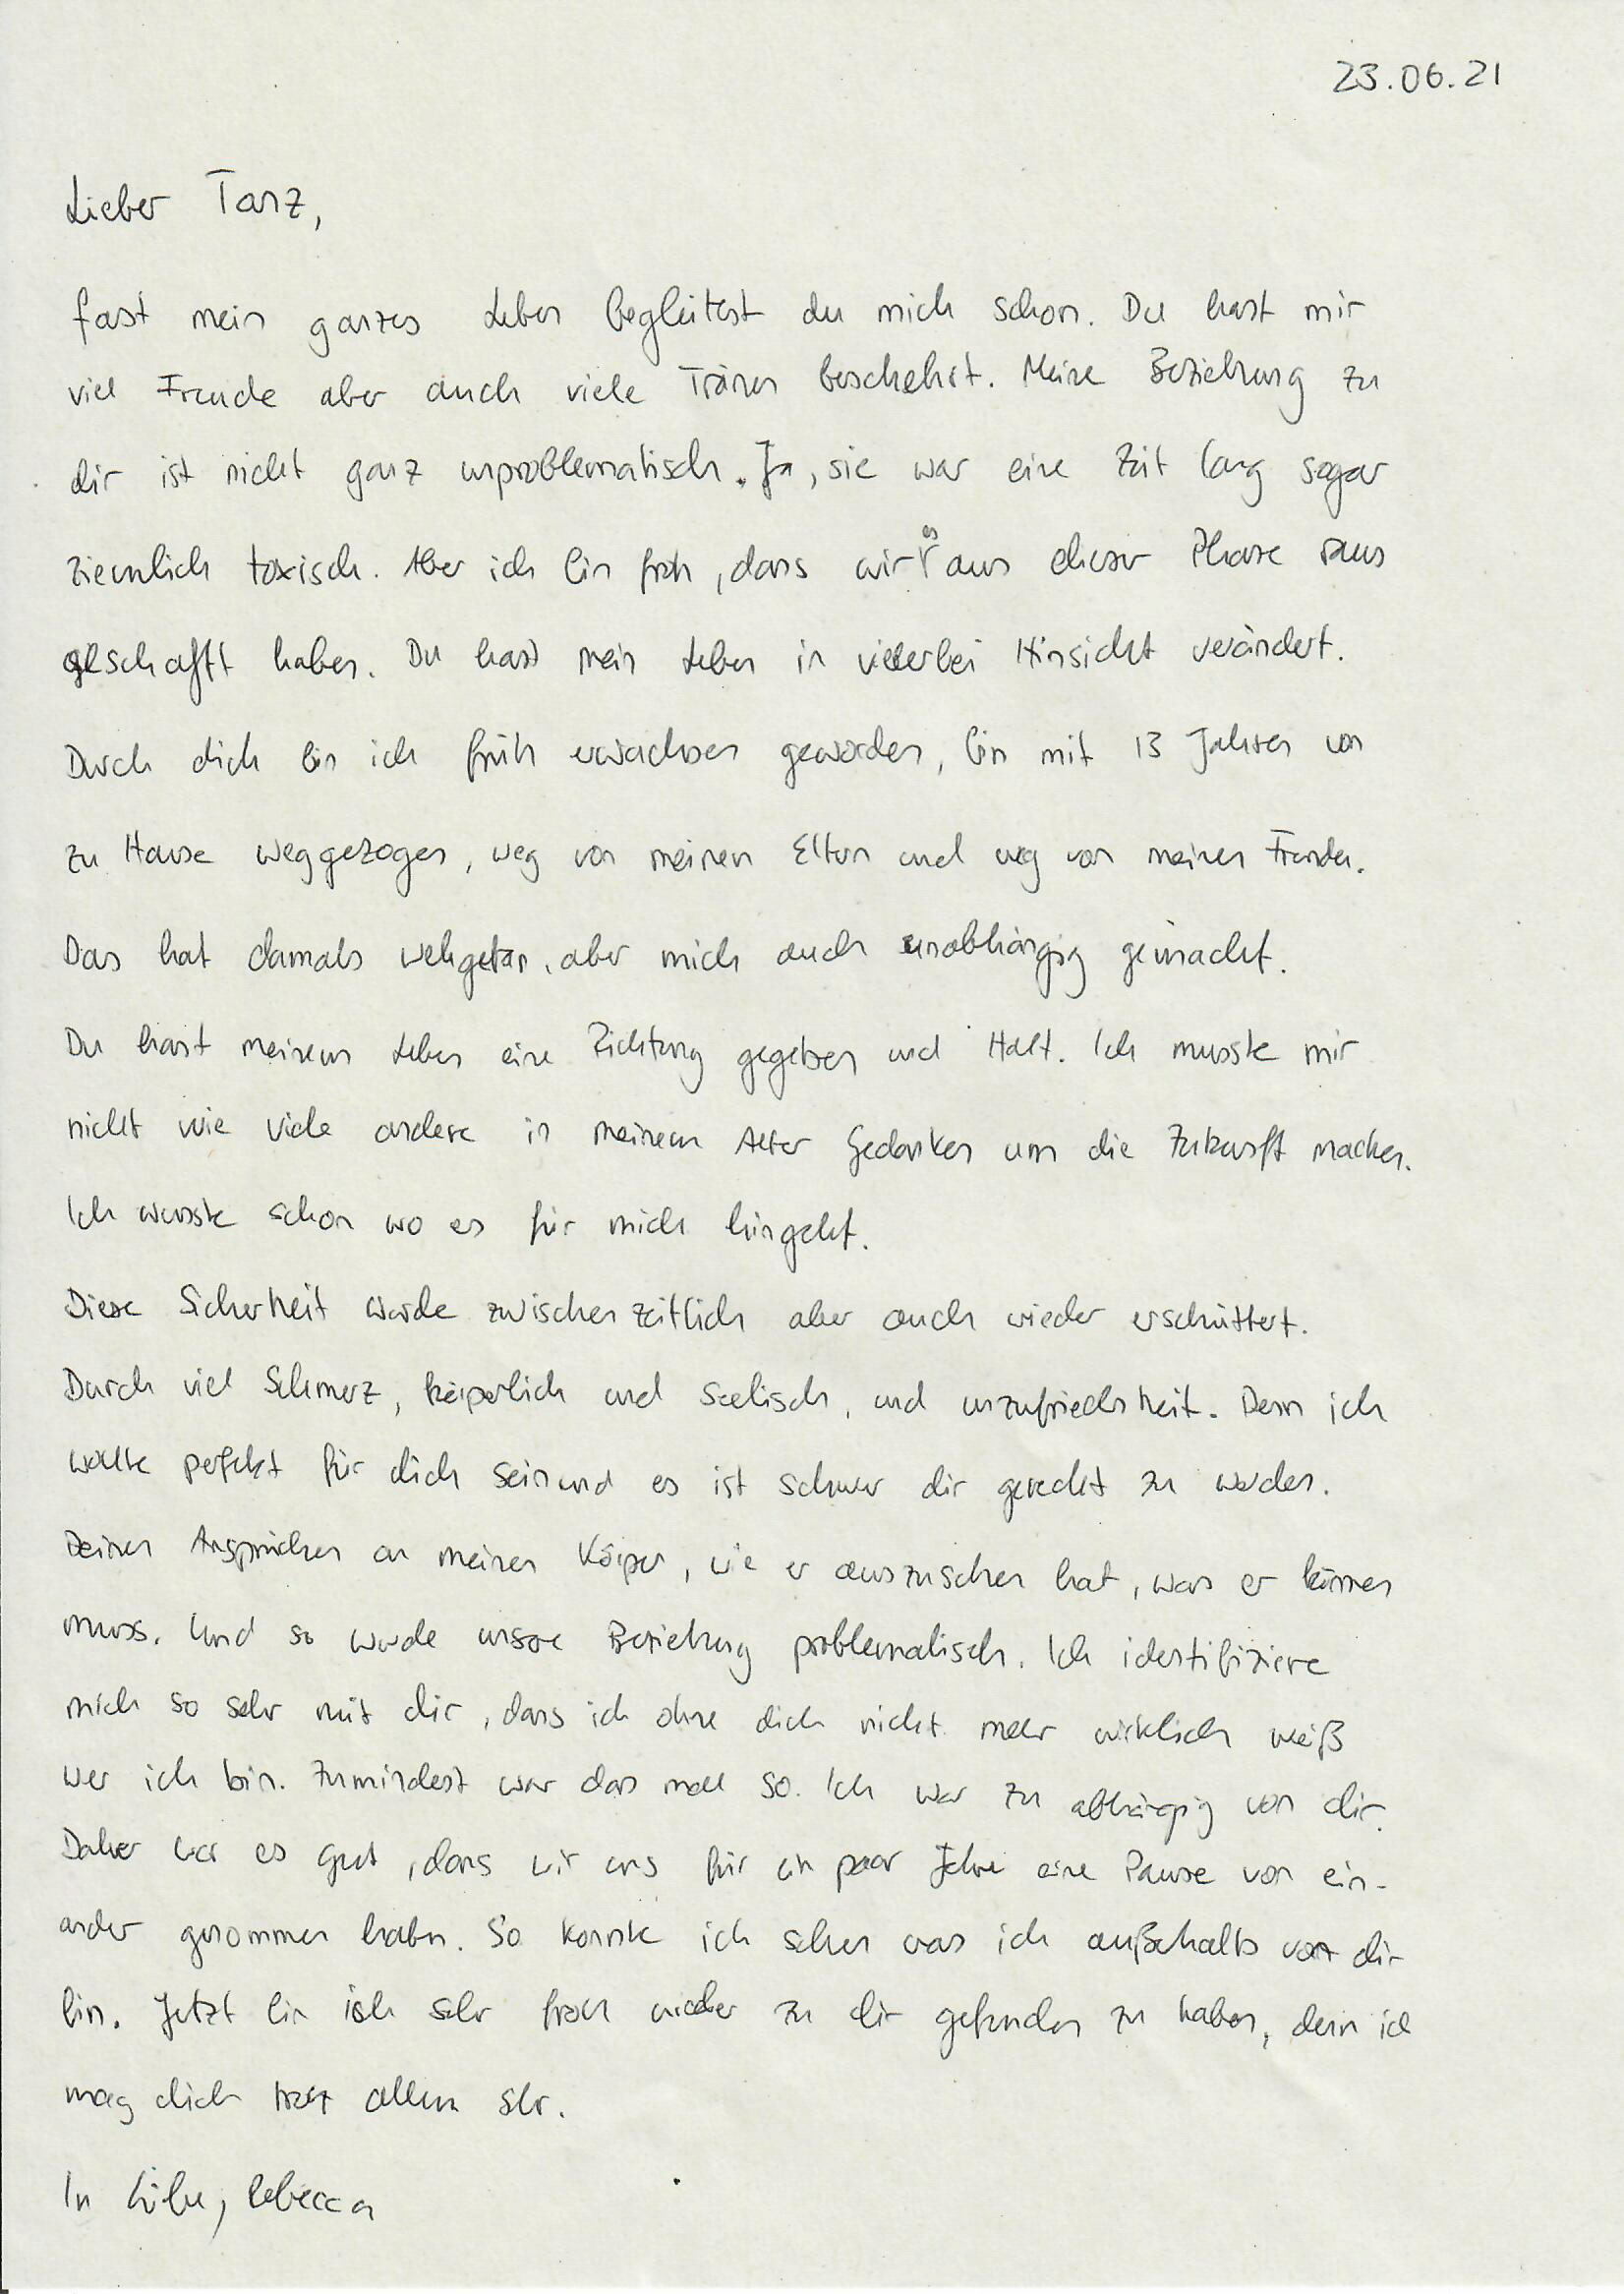 23.06.21
Lieber Tanz,
fast mein ganzes Leben begleitest du mich schon. Du hast mir
viel Freude aber auch viele Tränen beschehrt. Meine Beziehung zu
dir ist nicht ganz unproblematisch. Ja, sie war eine Zeit lang sogar
ziemlich toxisch. Aber ich bin froh, dass wir es aus dieser Phase raus
geschafft haben. Du hast mein Leben in vielerlei Hinsicht verändert.
Durch dich bin ich früh erwachsen geworden, bin mit 13 Jahren von
zu Hause weggezogen, weg von meinen Eltern und weg von meinen Freunden.
Das hat damals wehgetan, aber mich auch unabhängig gemacht.
Du hast meinem Leben eine Richtung gegeben und Halt. Ich musste mir
nicht wie viele andere in meinem Alter Gedanken um die Zukunft machen.
Ich wusste schon wo es für mich hingeht.
Diese Sicherheit wurde zwischenzeitlich aber auch wieder erschüttert.
Durch viel Schmerz, körperlich und seelisch, und unzufriedenheit. Denn ich
wollte perfekt für dich sein und es ist schwer dir gerecht zu werden.
Deinen Ansprüchen an meinen Körper, wie er auszusehen hat, was er können
muss. Und so wurde unsere Beziehung problematisch. Ich identifiziere
mich so sehr mit dir, dass ich ohne dich nicht mehr wirklich weiß
wer ich bin. Zumindest war das mal so. Ich war zu abhängig von dir.
Daher war es gut, dass wir uns für ein paar Jahre eine Pause von ein-
ander genommen haben. So konnte ich sehen was ich außerhalb von dir
bin. Jetzt bin ich sehr froh wieder zu dir gefunden zu haben, denn ich
mag dich trotz allem sehr.
In Liebe, Rebecca